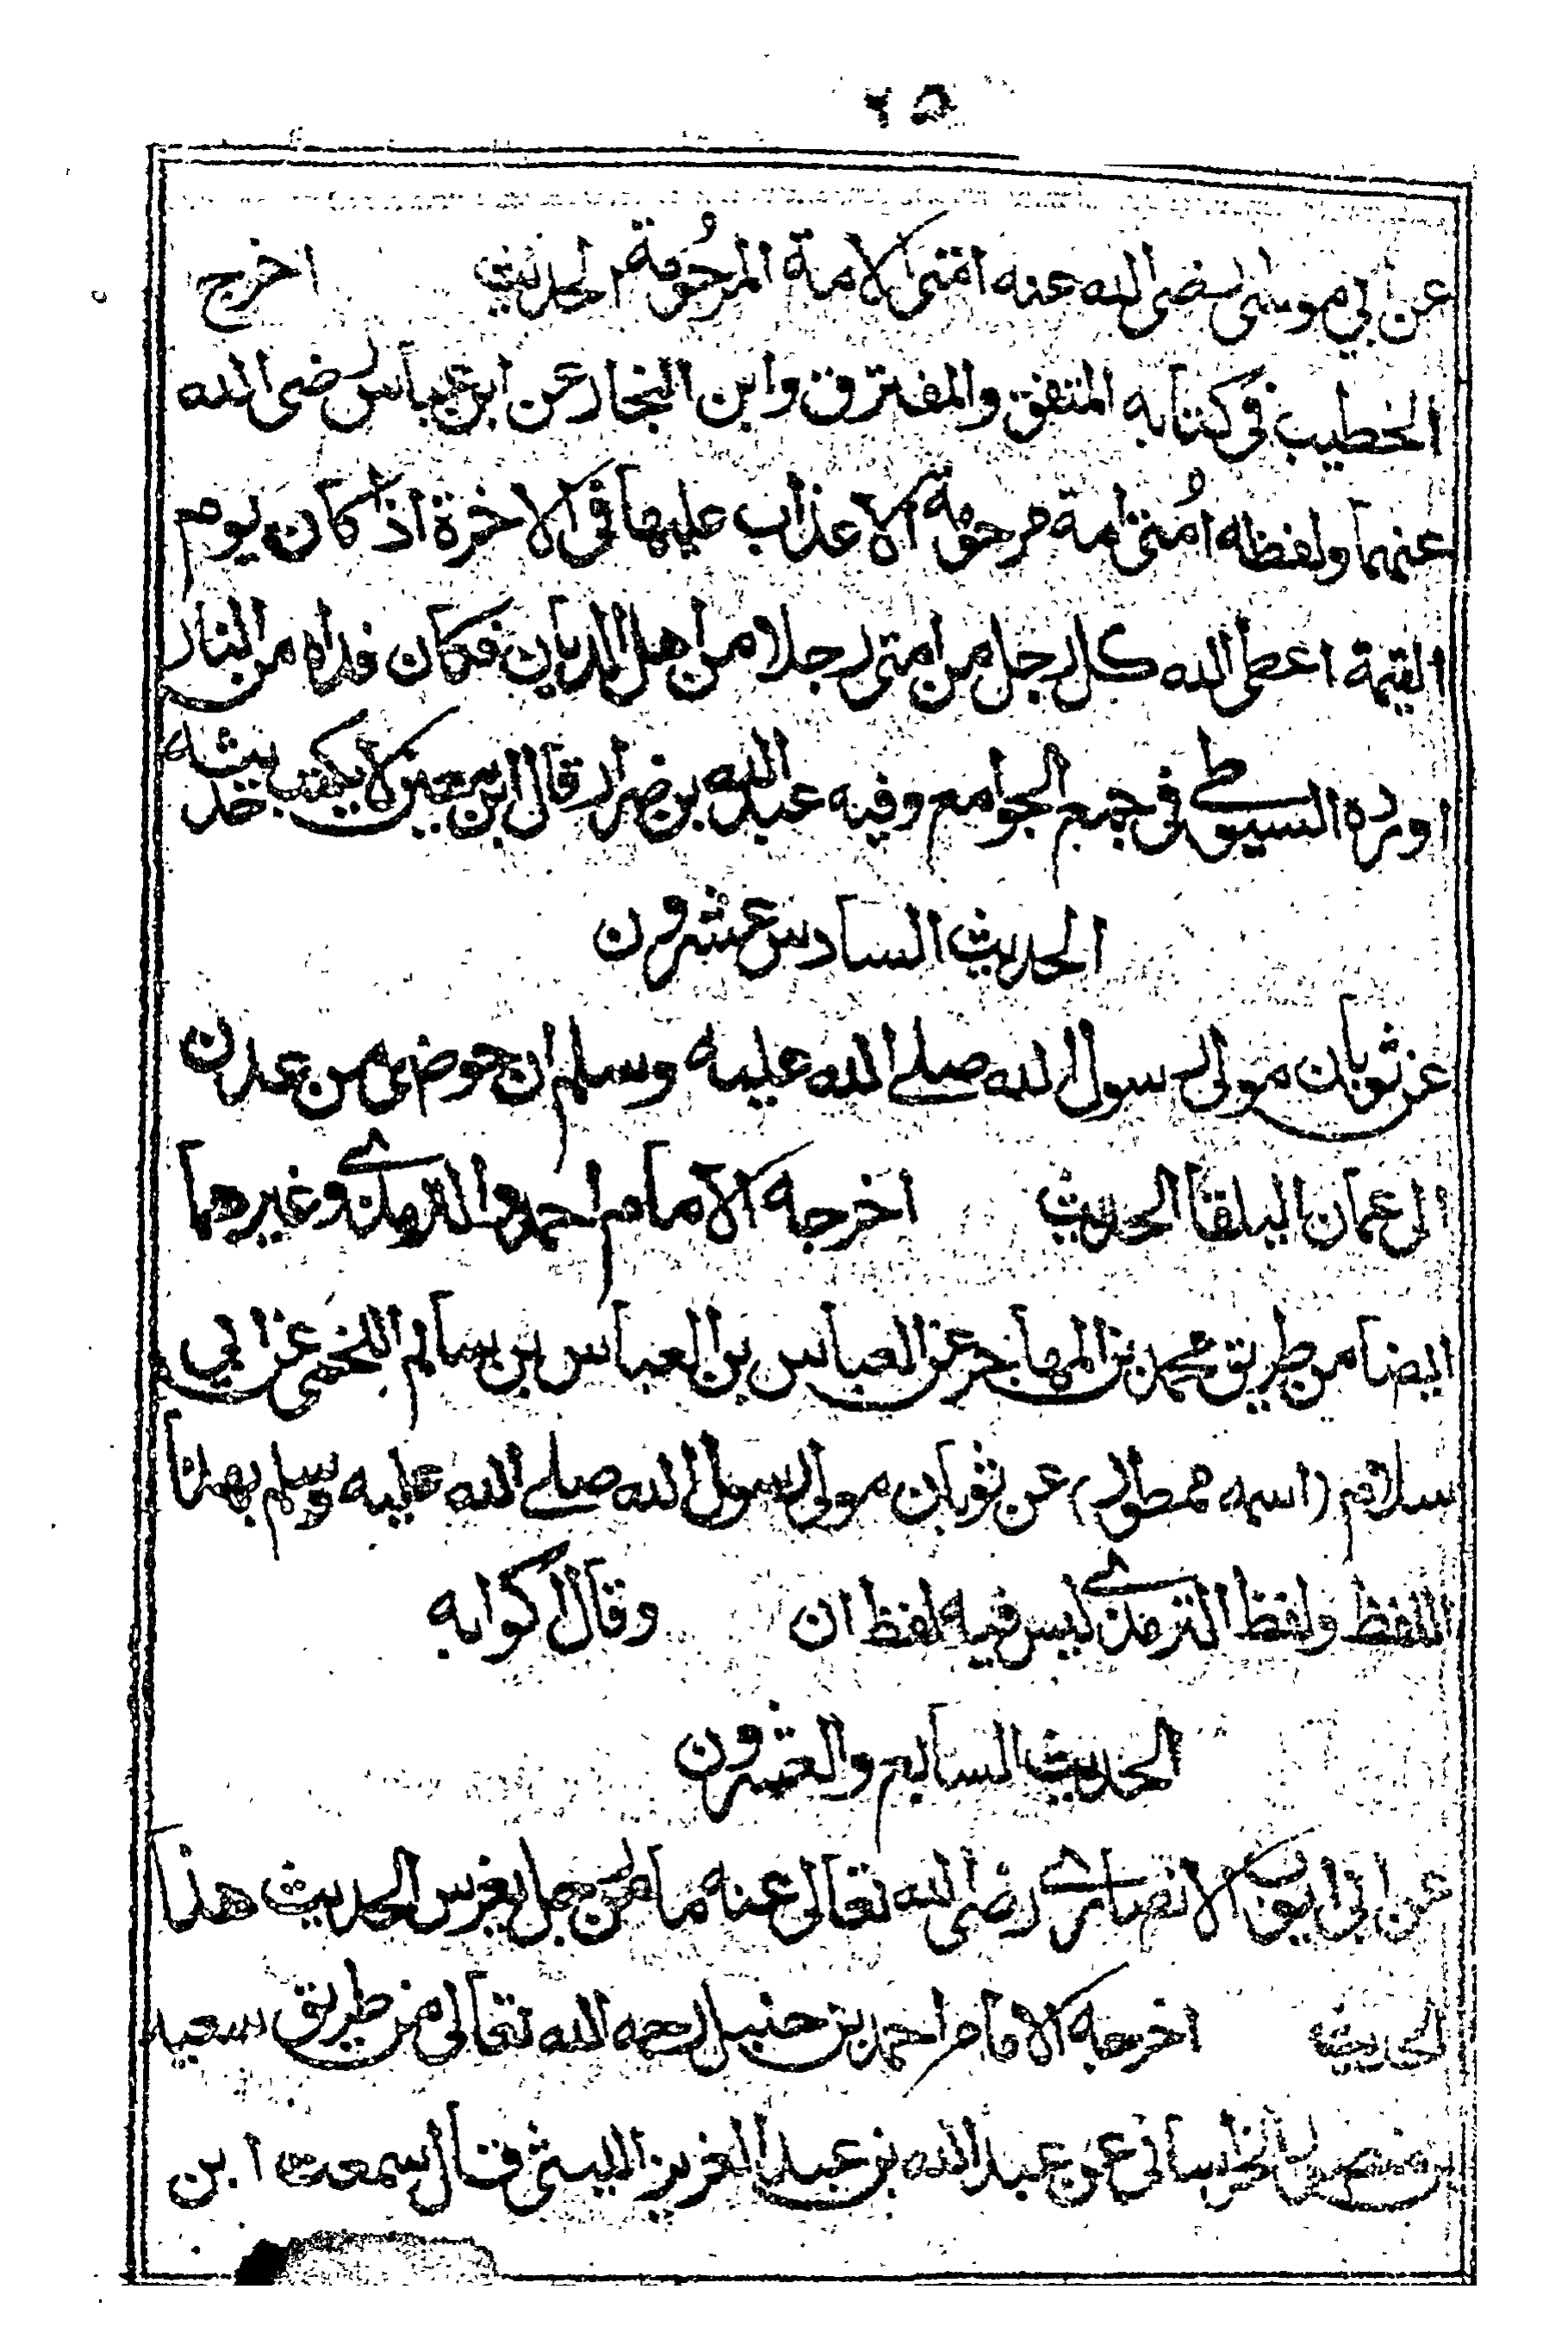 ٢٥
عن ابي موسى رضى الله عنه امتى الامة المرحُومة الحديث اخرج
الخطيب فى كتابه المتفق والمفترق وابن النجار عن ابن عباس رضى الله
عنهما ولفظه اُمتى امة مرحومة لا عذاب عليها فى الاخرة اذا كان يوم
القيمة اعطى الله كل رجل من امتى رجلا من اهل الاديان فكان فداه من النار
اورده السيوطى فى جمع الجوامع وفيه عبد الله بن ضرار قال ابن معين لا يكتب حديثه
الحديث السادس عشرون
عن ثوبان مولى رسول الله صلے الله عليه وسلم ان حوضى من عدن
الى عمان البلقا الحديث اخرجه الامام احمد والترمذے وغيرهما
ايضا من طريق محمد بن المهاجر عن العباس بن العباس بن سالم اللخمى عن ابي
سلام (اسمه ممطور) عن ثوبان مولى رسول الله صلے الله عليه وسلم بهذا
اللفظ ولفظ الترمذے ليس فيه لفظ ان وقال اكوابه
الحديث السابع والعشرون
عن ابى ايوب الانصارے رضى الله تعالى عنه ما من رجل يغرس الحديث هذا
الحديث اخرجه الامام احمد بن حنبل رحمه الله تعالى من طريق سعيد
بن منصور الخراسانى عن عبد الله بن عبد العزيز الليثى قال سمعت ابن